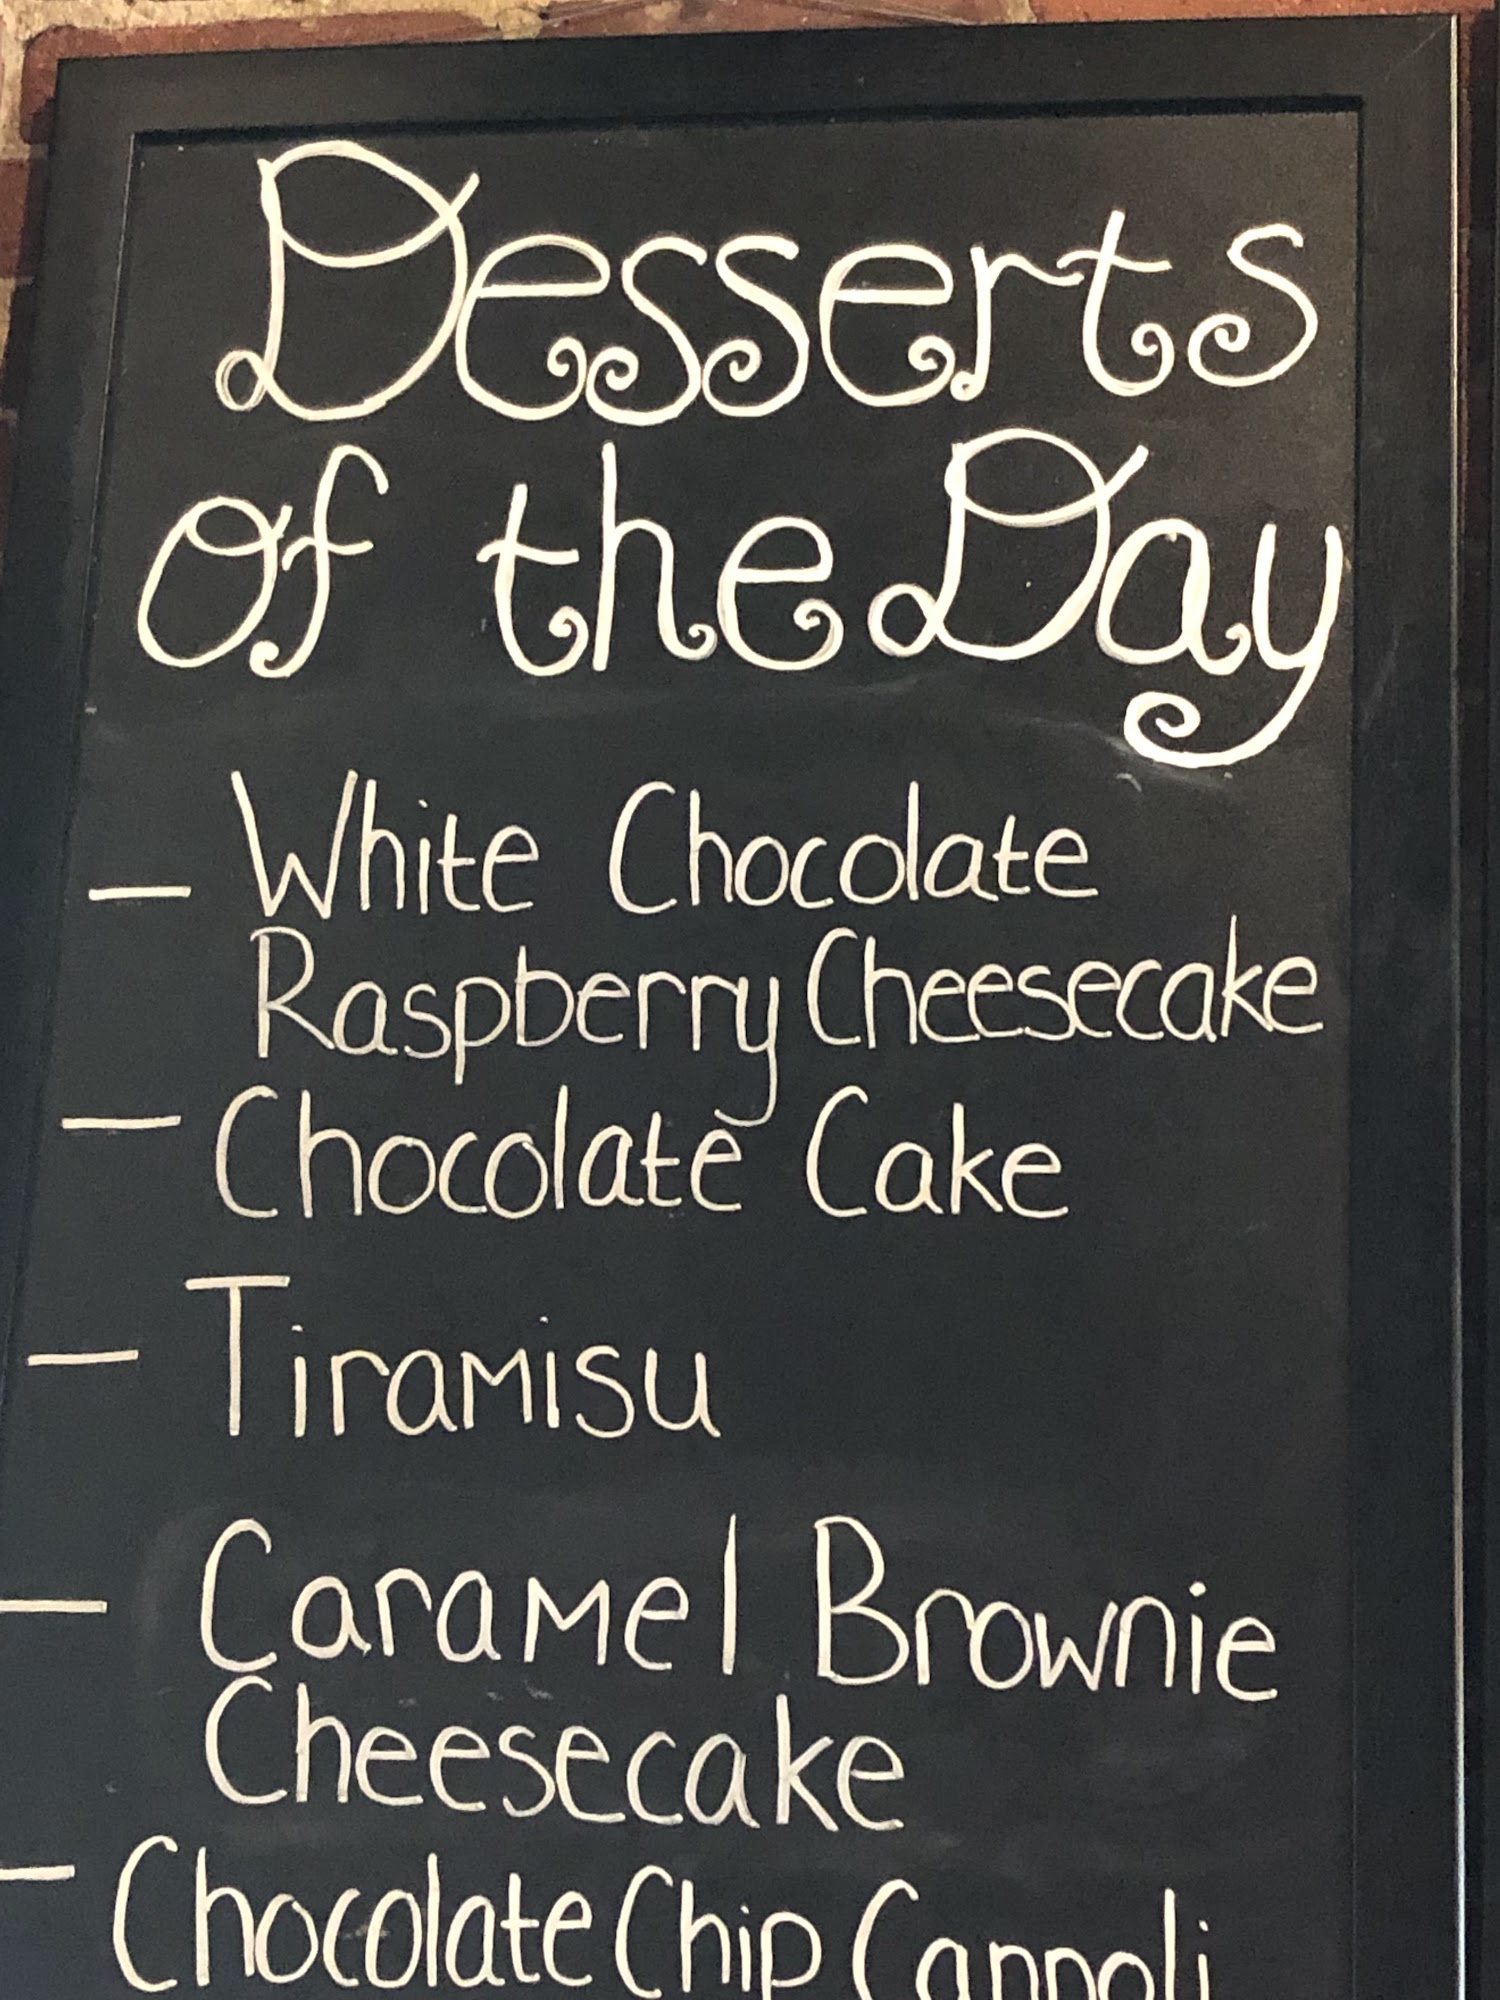 Desserts
of the Day
- White Chocolate
Raspberry Cheesecake
- Chocolate Cake
- Tiramisu
- Caramel Brownie
Cheesecake
- Chocolate Chip Cannoli